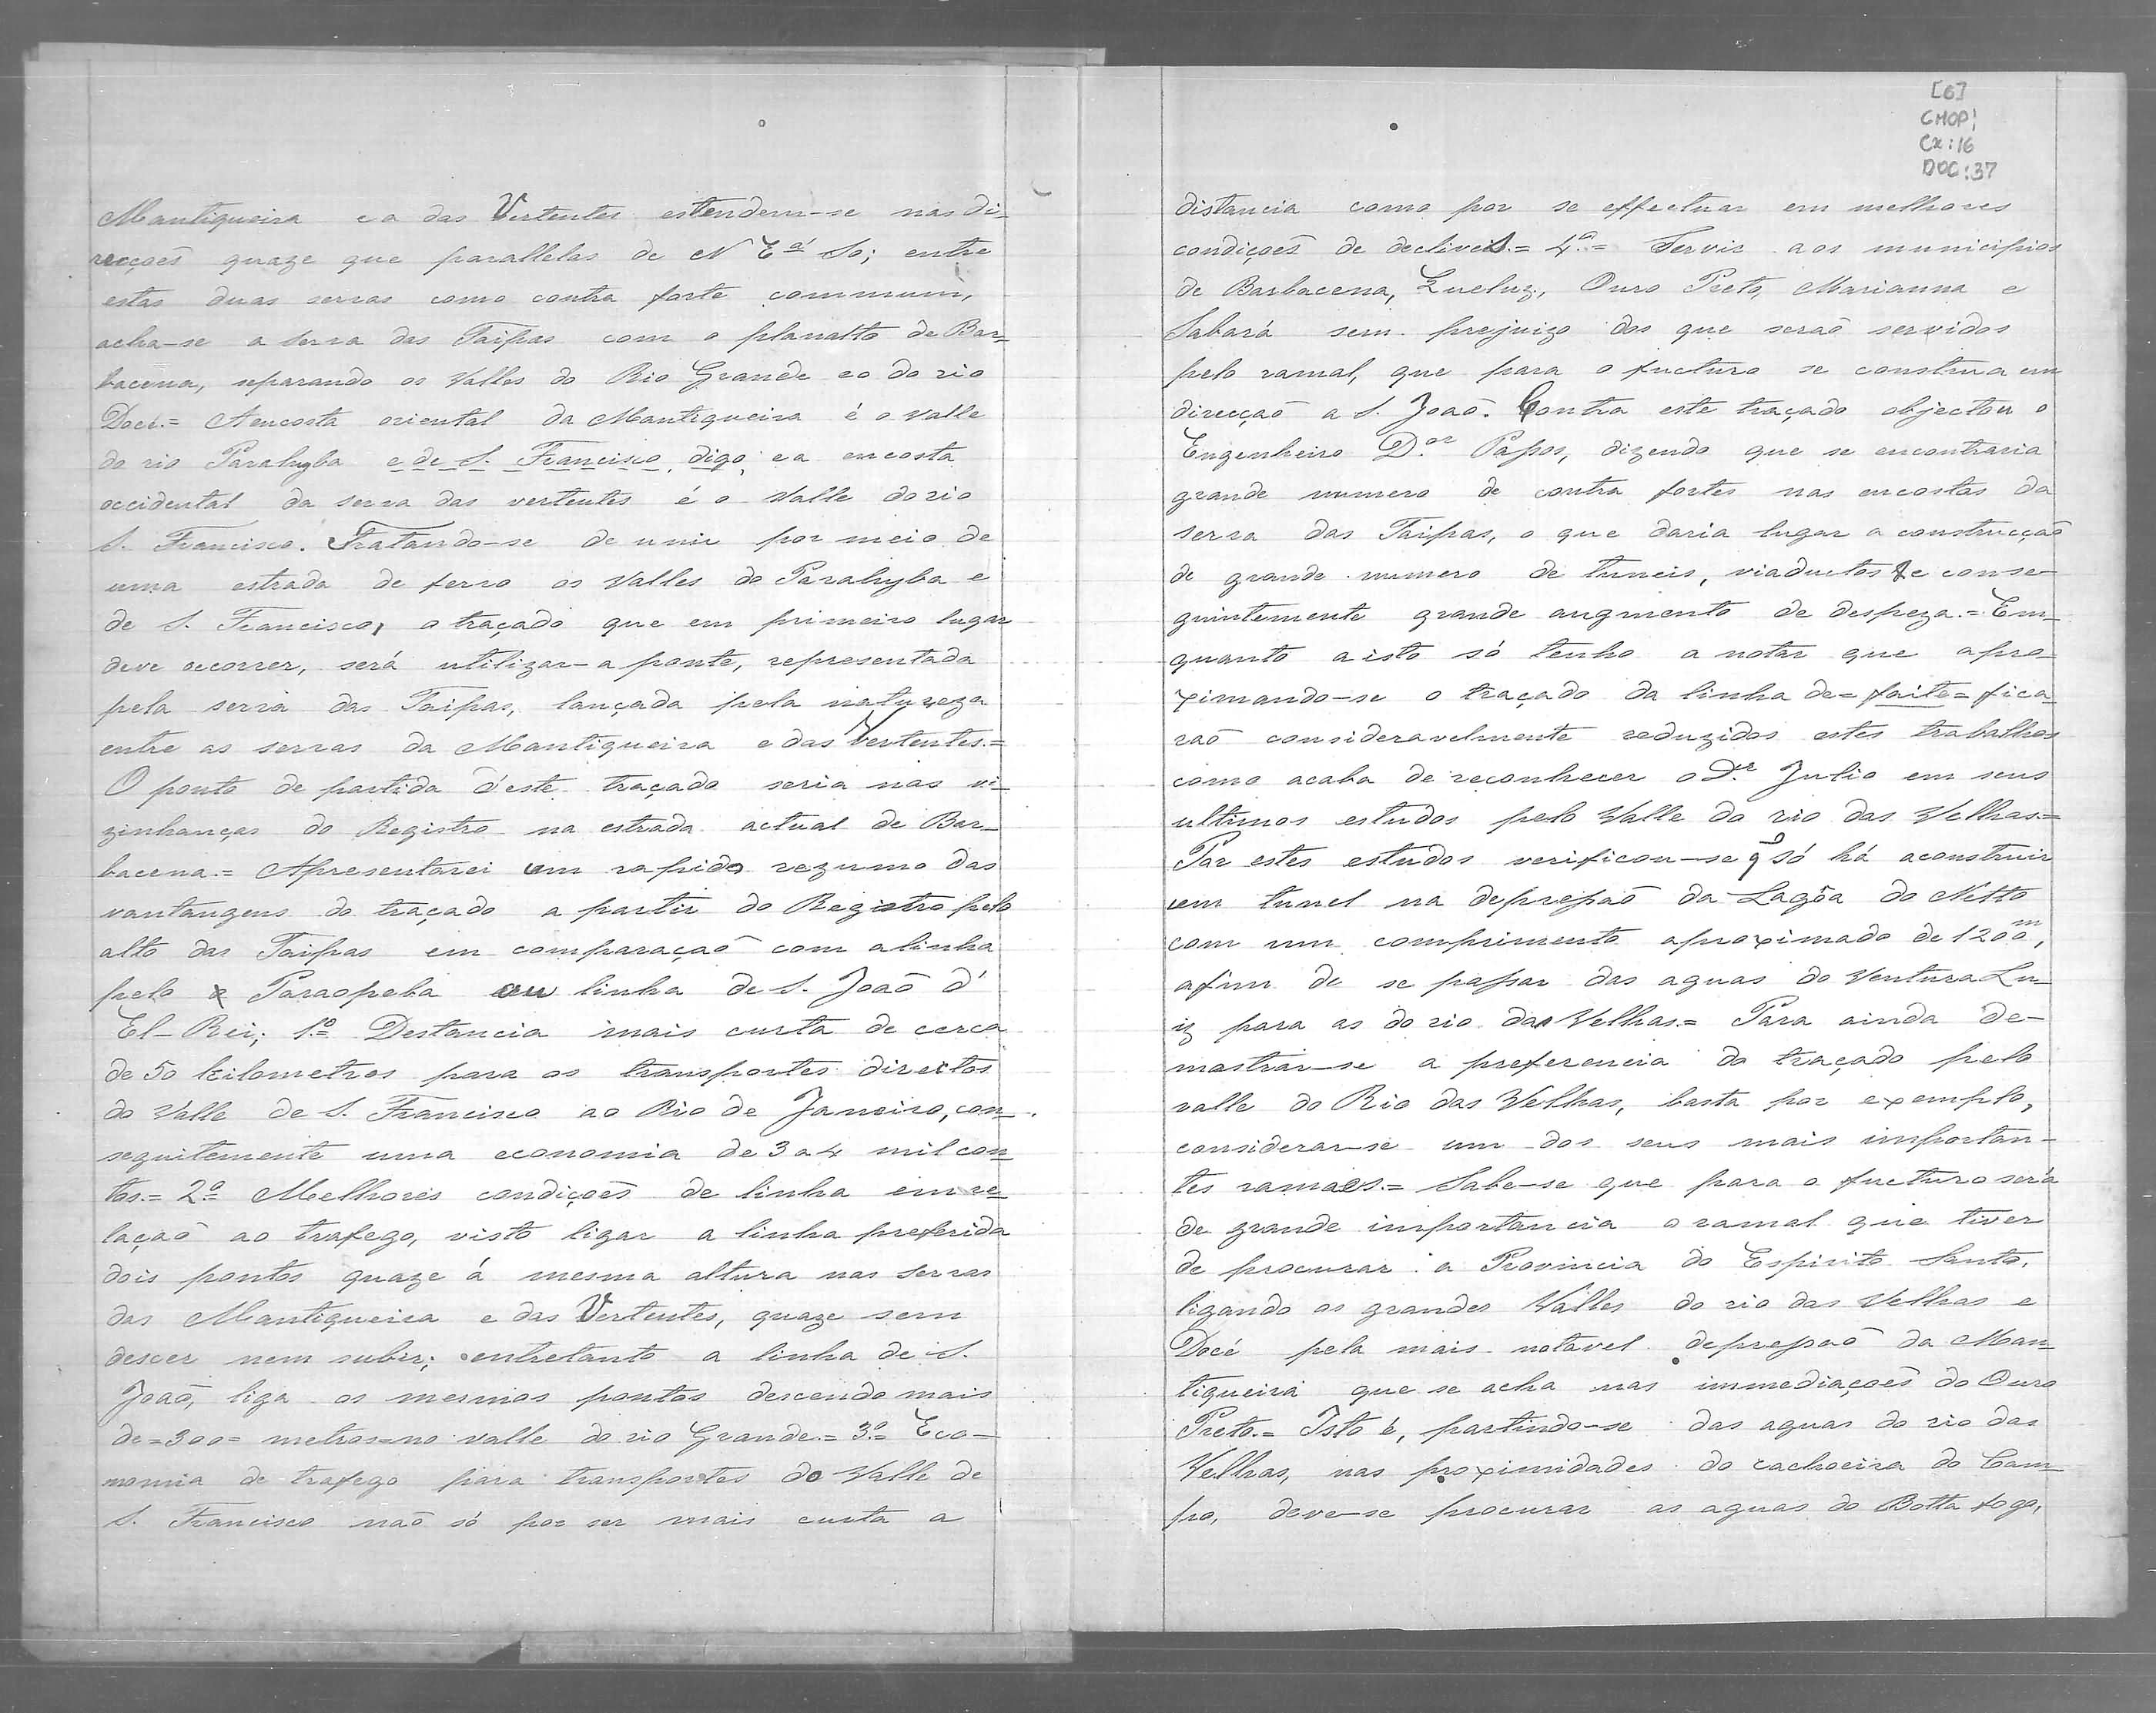 Mantiqueira e a das Vertentes estendem-se nas di-
recçoẽs quaze que parallelas de N Eª á So; entre
estas duas serras como contra forte commum,
acha-se a Serra das Taipas com o planalto de Bar=
bacena, separando os Valles do Rio Grande e o do rio
Doce.= A encosta oriental da Mantiqueira é o valle
do rio Parahyba e de S. Francisco, digo, e a encosta
occidental da serra das vertentes é o Valle do rio
S. Francisco. Tratando-se de unir por meio de
uma estrada de ferro os Valles do Parahyba e
de S. Francisco, o traçado que em primeiro lugar
deve occorrer, será utilizar-a ponte, representada
pela serra das Taipas, lançada pela natureza
entre as serras da Mantiqueira e das Vertentes.=
O ponto de partida d'este traçado seria nas vi-
zinhanças do Registro na estrada actual de Bar-
bacena.= Apresentarei um rapido rezumo das
vantangens do traçado a partir do Registro pelo
alto das Taipas em comparaçaõ com a linha
pelo Paraopeba ou linha de S. Joaõ d'
El-Rei; 1.º Destancia mais curta de cerca
de 50 kilometros para os transportes directos
do Valle de S. Francisco ao Rio de Janeiro, con-
sequitemente uma economia de 3 a 4 mil con=
tos.= 2º Melhores condiçoẽs de linha em re=
laçaõ ao trafego, visto ligar a linha preferida
dois pontos quaze á mesma altura nas serras
das Mantiqueira e das Vertentes, quaze sem
descer nem subir; entretanto a linha de S.
Joaõ, liga os mesmos pontos descendo mais
de=300= metros=no valle do rio Grande.= 3.º Eco-
nomia de trafego para transportes do Valle de
S. Francisco naõ só por ser mais curta a
[6]
CMOP!
Cx:16
DOC:37
distancia como por se effectuar em melhores
condiçoẽs de declives.= 4.º= Servir aos municipios
de Barbacena, Queluz, Ouro Preto, Marianna e
Sabará sem prejuizo dos que seraõ servidos
pelo ramal, que para o fucturo se construa em
direcçaõ a S. Joaõ. Contra este traçado objectou o
Engenheiro D.or Passos, dizendo que se encontraria
grande numero de contra fortes nas encostas da
serra das Taipas, o que daria lugar a construcçaõ
de grande numero de tuneis, viaductos e conse-
guintemente grande augmento de despeza.= Em-
quanto a isto só tenho a notar que apro-
ximando-se o traçado da linha de= faite= fica-
raõ consideravelmente reduzidos estes trabalhos
como acaba de reconhecer o D.r Julio em seus
ultimos estudos pelo Valle do rio das Velhas.=
Por estes estudos verificou-se q só há a construir
um tunel na depressaõ da Lagôa do Netto
com um comprimento aproximado de 1200m,
afim de se passar das aguas do Ventura Lu-
iz para as do rio das Velhas.= Para ainda de-
mostrar-se a preferencia do traçado pelo
valle do Rio das Velhas, basta por exemplo,
considerar-se um dos seus mais importan-
tes ramaes.= Sabe-se que para o fucturo será
de grande importancia o ramal que tiver
de procurar a Provincia do Espirito Santo,
ligando os grandes Valles do rio das Velhas e
Docé pela mais notavel depressaõ da Man=
tiqueira que se acha nas immediaçoẽs do Ouro
Preto.= Isto é, partindo-se das aguas do rio das
Velhas, nas proximidades da cachoeira do Cam-
po, deve-se procurar as aguas do Botta fogo,